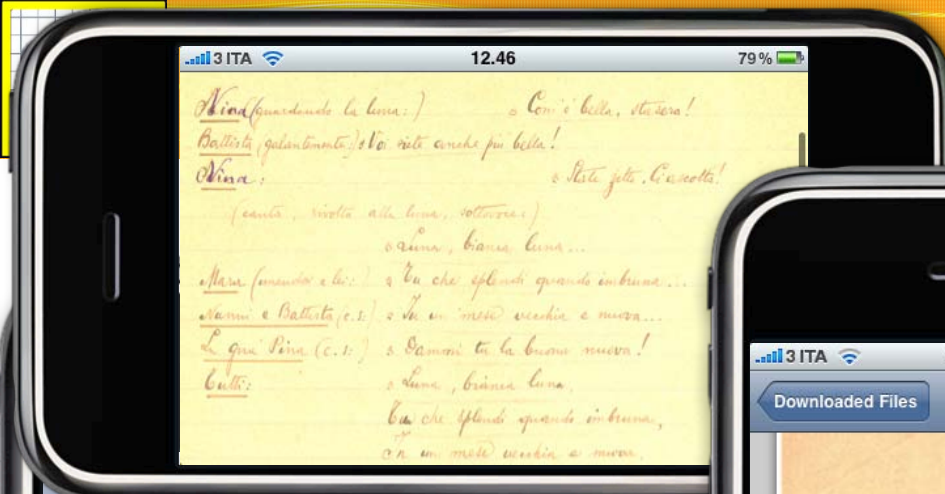 3 ITA 12.46 79 %
Nina (guardando la luna:) Com'è bella, stasera!
Battista (galantemente:) Voi siete anche più bella!
Nina: State zitto. Ci ascolta!
(canta, rivolta alla luna, sottovoce:)
Luna, bianca luna...
Mara (unendosi a lei:) Tu che splendi quando imbruna...
Nanni e Battista (c.s:) In un mese vecchia e nuova...
La gnà Pina (c.s:) Dammi tu la buona nuova!
Tutti: Luna, bianca luna,
Tu che splendi quando imbruna,
In un mese vecchia e nuova,
3 ITA
Downloaded Files